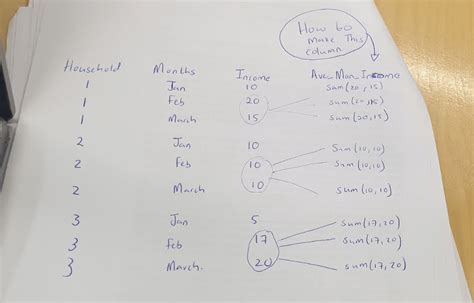 How to
make This
column
Household Months Income Ave Mon Income
1 Jan 10 sum(20,15)
1 Feb 20 sum(20,15)
1 March 15 sum(20,15)
2 Jan 10 sum(10,10)
2 Feb 10 sum(10,10)
2 March 10 sum(10,10)
3 Jan 5 sum(17,20)
3 Feb 17 sum(17,20)
3 March. 20 sum(17,20)